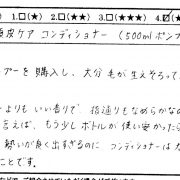 ) 1.□(★) 2.□(★★) 3.□(★★★) 4.☑(★
頭皮ケア コンディショナー (500mlポンプ
プーを購入し、大分毛が生えそろって
よりも いい香りで、指通りもなめらかなの
言えば、もう少しボトルが使い安かったら
勢いが良く出すぎるのに コンディショナーは
ことです。